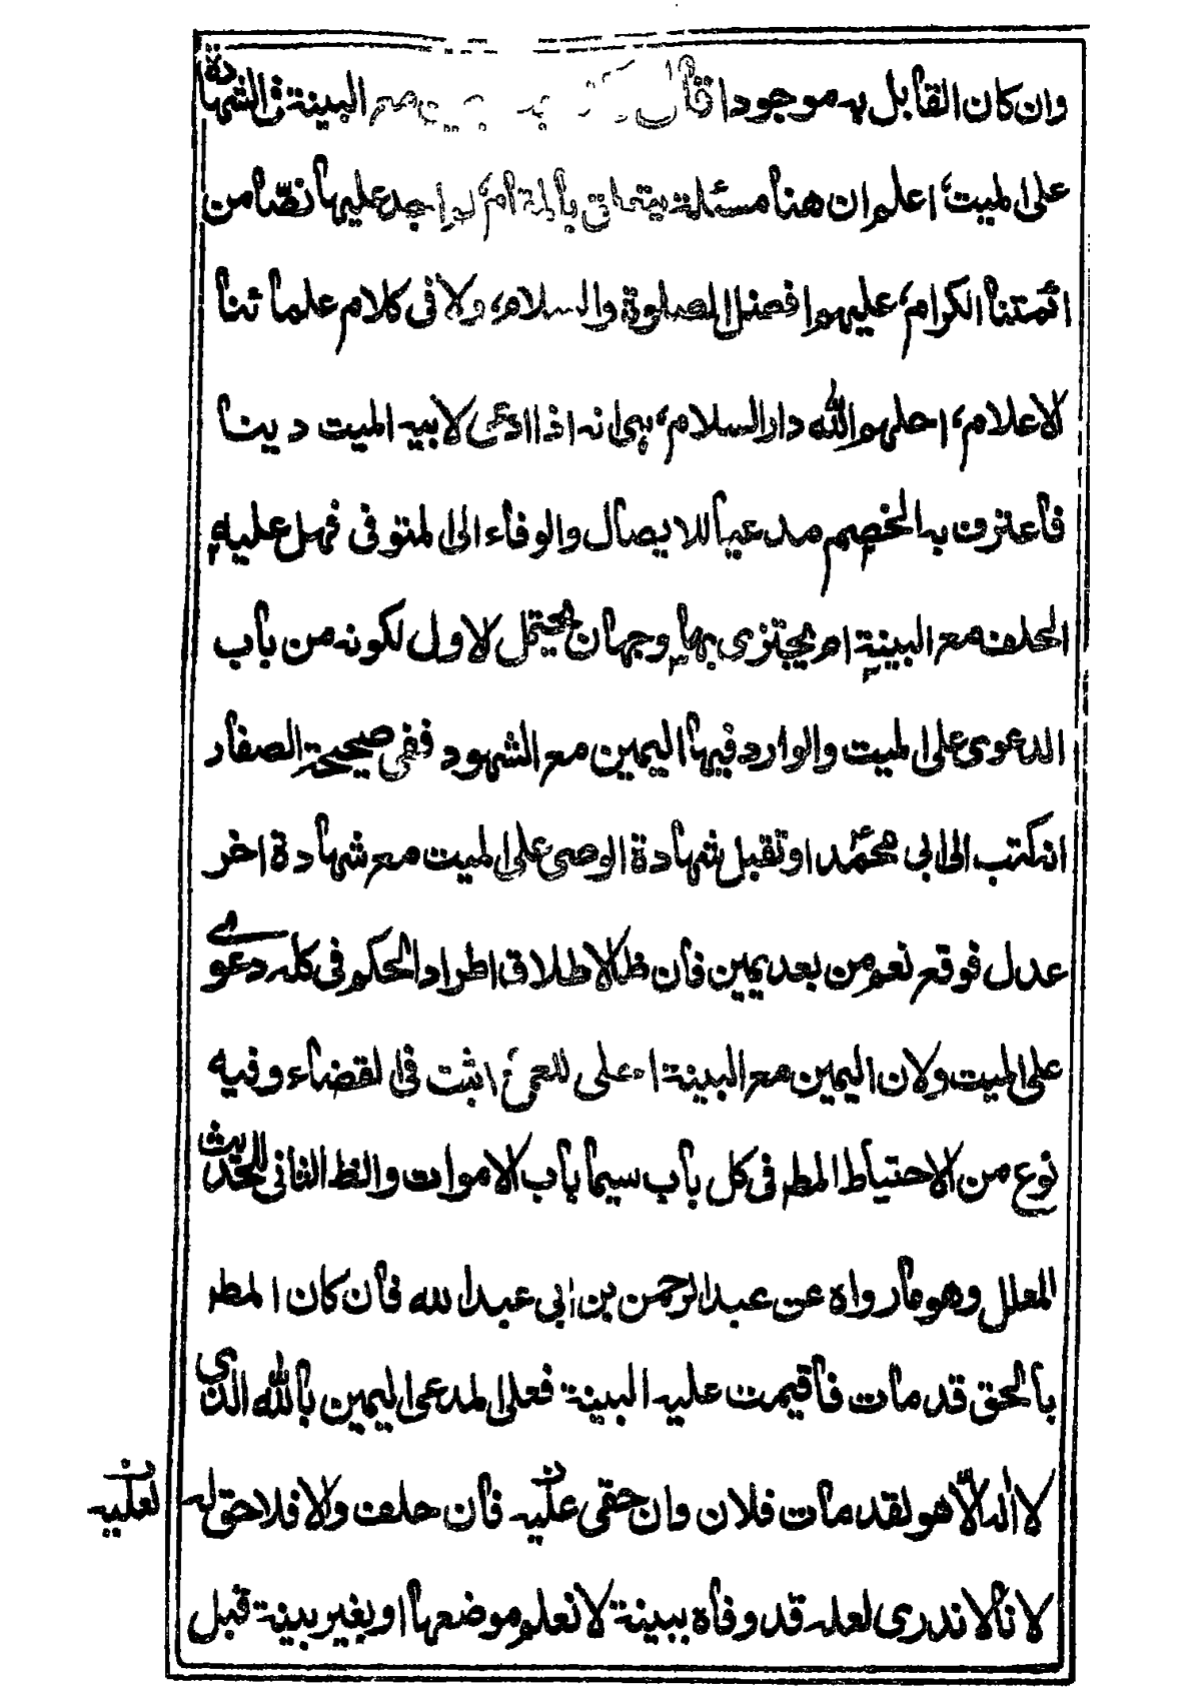 وان كان القابل به موجودا قال البينة فى الشهادة
على الميت، اعلم ان هنا مسئلة يتعلق بالمقام، لم اجد عليها نصّا من
ائمتنا الكرام، عليهم افضل الصلوة والسلام، ولا فى كلام علمائنا
الاعلام، احلهم الله دار السلام، هى انه اذا ادعى لابيه الميت دينا
فاعترف به الخصم مدعيا للايصال والوفاء الى المتوفى فهل عليه
الحلف مع البينة ام يجتزى بها وجهان يحتمل الاول لكونه من باب
الدعوى على الميت والوارد فيها اليمين مع الشهود ففى صحيحة الصفار
انه كتب الى ابى محمد او تقبل شهادة الوصى على الميت مع شهادة اخر
عدل فوقع نعم من بعد يمين فان ظ الاطلاق اطراد الحكم فى كله دعوى
على الميت ولان اليمين مع البينة اعلى للعمى اثبت فى القضاء وفيه
نوع من الاحتياط المط فى كل باب سيما باب الاموات والظ الثانى للحديث
المعلل وهو ما رواه عن عبد الرحمن بن ابى عبد الله فان كان المط
بالحق قد مات فاقيمت عليه البينة فعلى المدعى اليمين بالله الذى
لا اله الا هو لقد مات فلان وان حقى عليه فان حلف والا فلا حق له
لعليه
لانا لا ندرى لعله قد وفاه ببينة لا نعلم موضعها او بغير بينة قبل